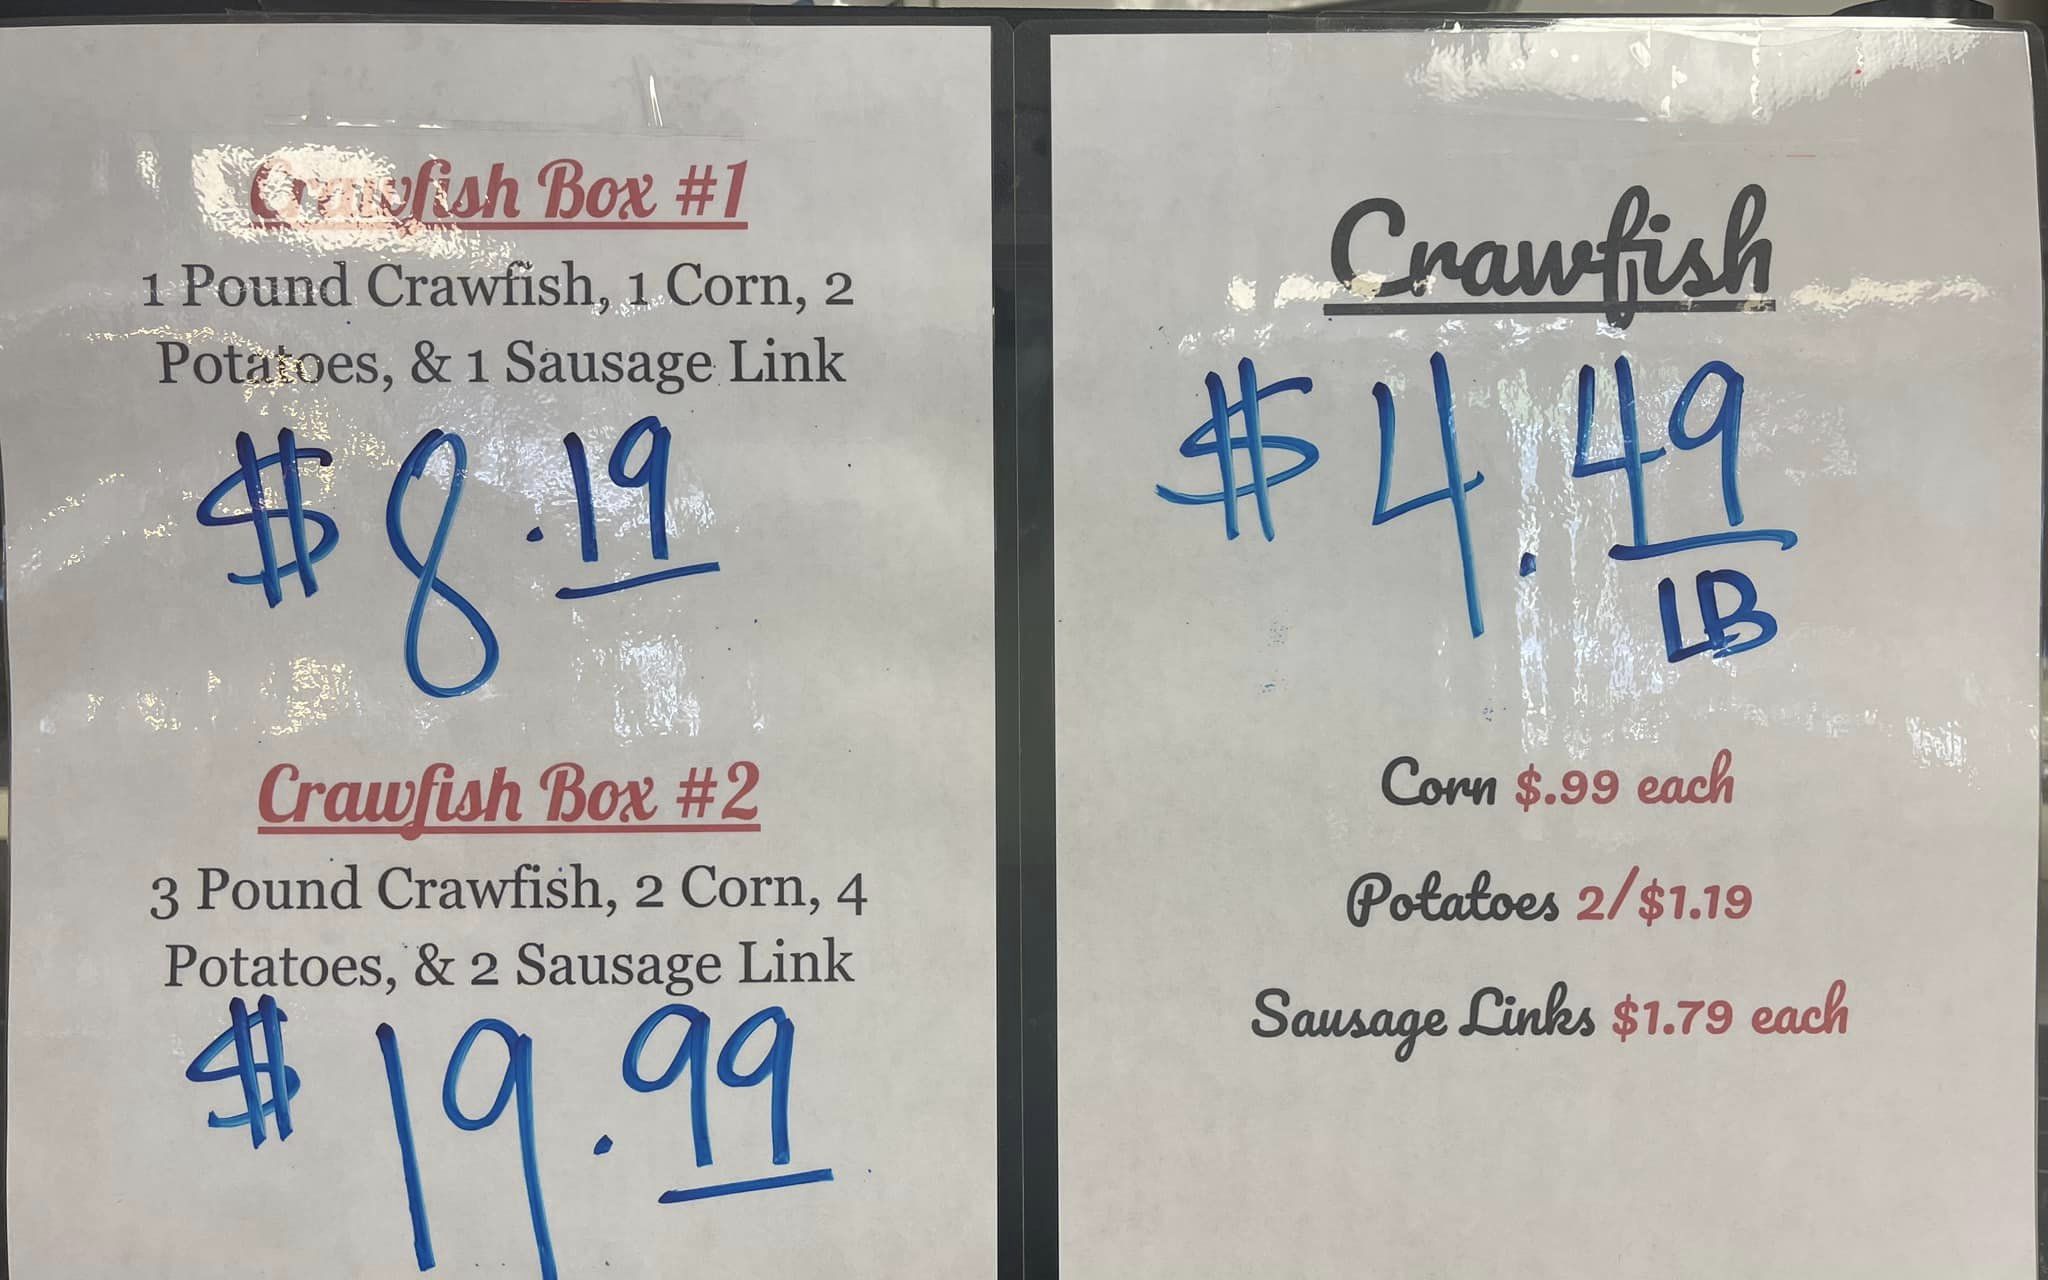 Crawfish Box #1
1 Pound Crawfish, 1 Corn, 2
Potatoes, & 1 Sausage Link
$8.19
Crawfish Box #2
3 Pound Crawfish, 2 Corn, 4
Potatoes, & 2 Sausage Link
$19.99
Crawfish
$4.49
LB
Corn $.99 each
Potatoes 2/$1.19
Sausage Links $1.79 each